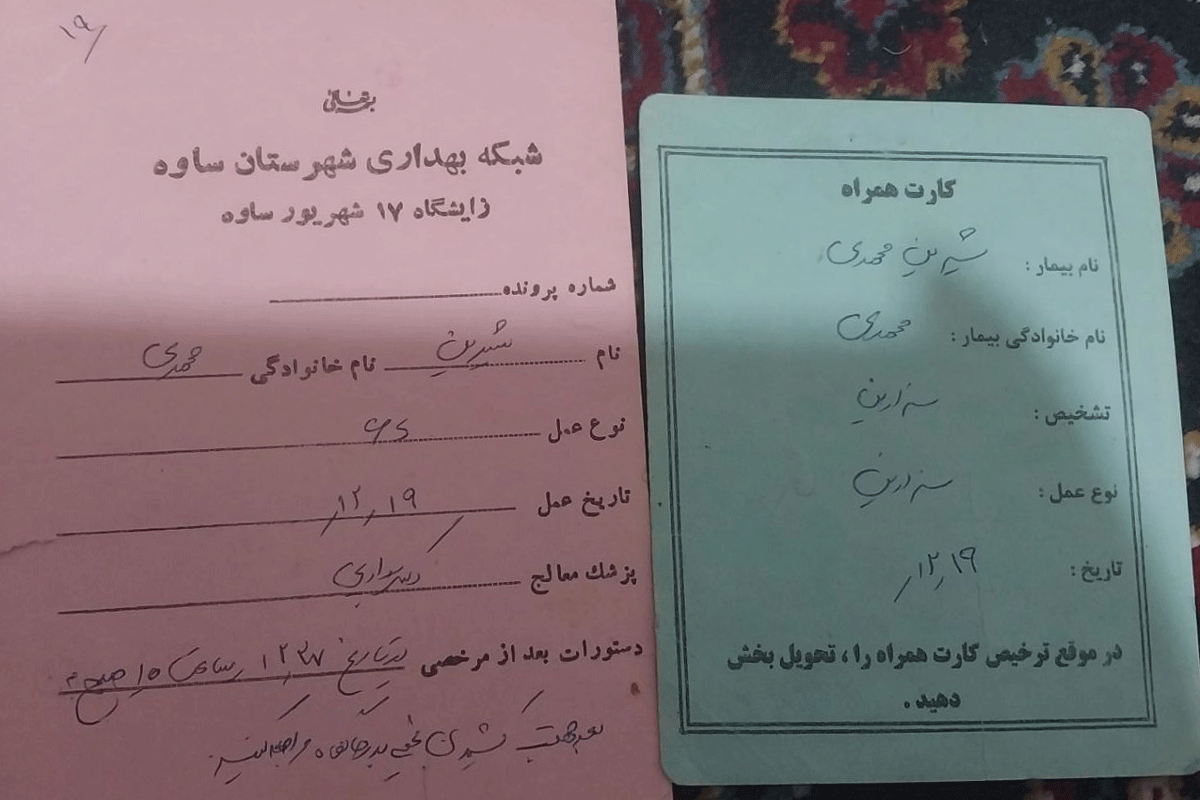 ۱۹
بسمه تعالی
شبکه بهداری شهرستان ساوه
زایشگاه ۱۷ شهریور ساوه
شماره پرونده
نام شیرین نام خانوادگی محمدی
نوع عمل
تاریخ عمل ۱۲٫۱۹
پزشك معالج دکتر
دستورات بعد از مرخصی در تاریخ ساعت ۱۰ صبح
جهت کشیدن بخیه به درمانگاه مراجعه کنید.
کارت همراه
نام بیمار : شیرین محمدی
نام خانوادگی بیمار : محمدی
تشخیص : سزارین
نوع عمل : سزارین
تاریخ : ۱۲٫۱۹
در موقع ترخیص کارت همراه را ، تحویل بخش
دهید .